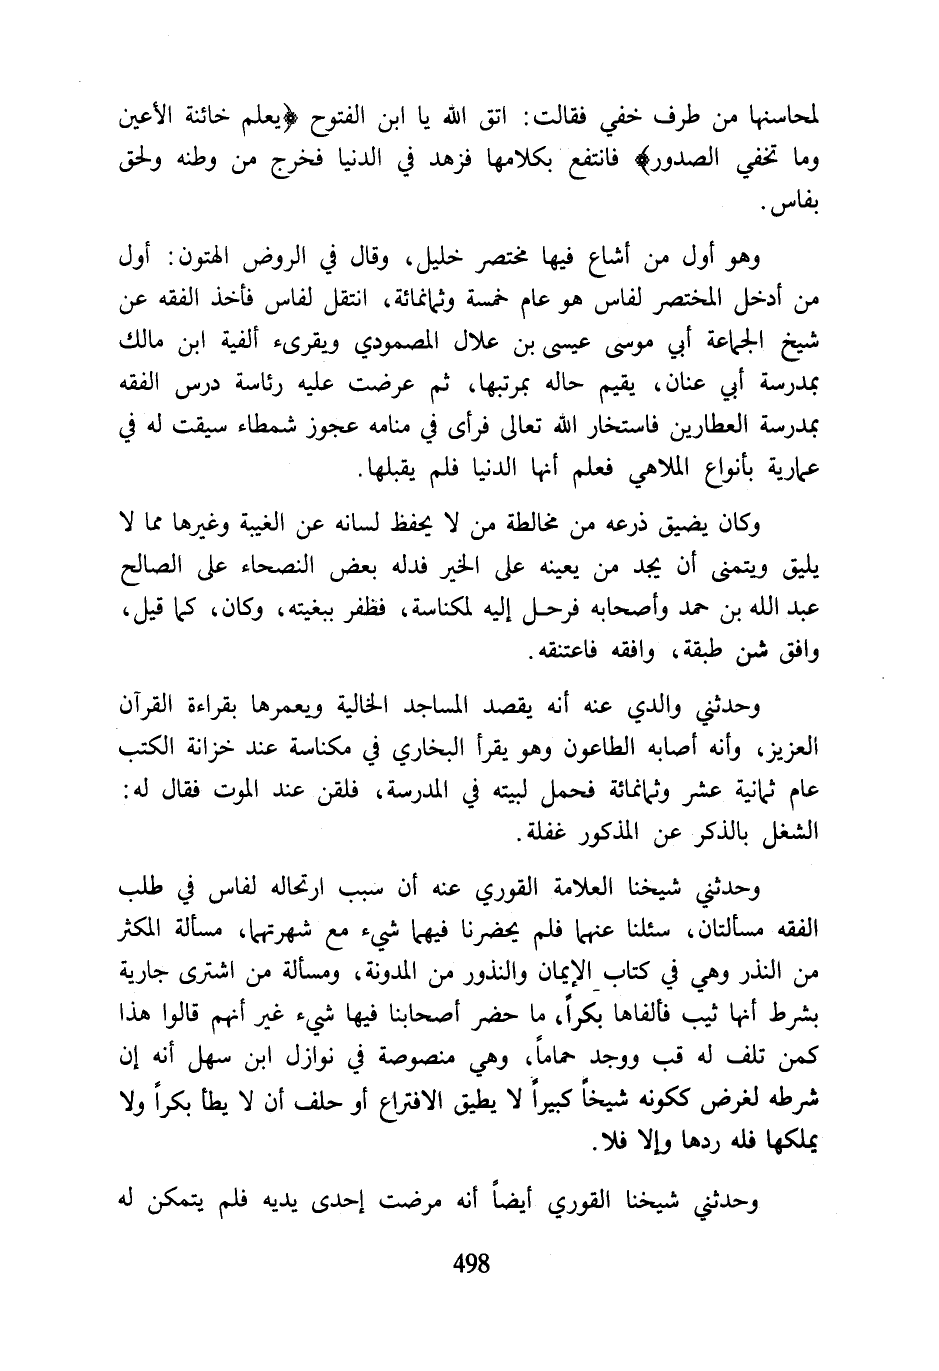 لمحاسنها من طرف خفي فقالت: اتق الله يا ابن الفتوح ﴿يعلم خائنة الأعين
وما تخفي الصدور﴾ فانتفع بكلامها فزهد في الدنيا فخرج من وطنه ولحق
بفاس.
وهو أول من أشاع فيها مختصر خليل، وقال في الروض الهتون: أول
من أدخل المختصر لفاس هو عام خمسة وثمانمائة، انتقل لفاس فأخذ الفقه عن
شيخ الجماعة أبي موسى عيسى بن علال المصمودي ويقرىء ألفية ابن مالك
بمدرسة أبي عنان، يقيم حاله بمرتبها، ثم عرضت عليه رئاسة درس الفقه
بمدرسة العطارين فاستخار الله تعالى فرأى في منامه عجوز شمطاء سيقت له في
عمارية بأنواع الملاهي فعلم أنها الدنيا فلم يقبلها.
وكان يضيق ذرعه من مخالطة من لا يحفظ لسانه عن الغيبة وغيرها مما لا
يليق ويتمنى أن يجد من يعينه على الخير فدله بعض النصحاء على الصالح
عبد الله بن حمد وأصحابه فرحل إليه لمكناسة، فظفر ببغيته، وكان، كما قيل،
وافق شن طبقة، وافقه فاعتنقه.
وحدثني والدي عنه أنه يقصد المساجد الخالية ويعمرها بقراءة القرآن
العزيز، وأنه أصابه الطاعون وهو يقرأ البخاري في مكناسة عند خزانة الكتب
عام ثمانية عشر وثمانمائة فحمل لبيته في المدرسة، فلقن عند الموت فقال له:
الشغل بالذكر عن المذكور غفلة.
وحدثني شيخنا العلامة القوري عنه أن سبب ارتحاله لفاس في طلب
الفقه مسألتان، سئلنا عنهما فلم يحضرنا فيهما شيء مع شهرتهما، مسألة المكثر
من النذر وهي في كتاب الإيمان والنذور من المدونة، ومسألة من اشترى جارية
بشرط أنها ثيب فألفاها بكراً، ما حضر أصحابنا فيها شيء غير أنهم قالوا هذا
كمن تلف له قب ووجد حماماً، وهي منصوصة في نوازل ابن سهل أنه إن
شرطه لغرض ككونه شيخاً كبيراً لا يطيق الافتراع أو حلف أن لا يطأ بكراً ولا
يملكها فله ردها وإلا فلا.
وحدثني شيخنا القوري أيضاً أنه مرضت إحدى يديه فلم يتمكن له
498